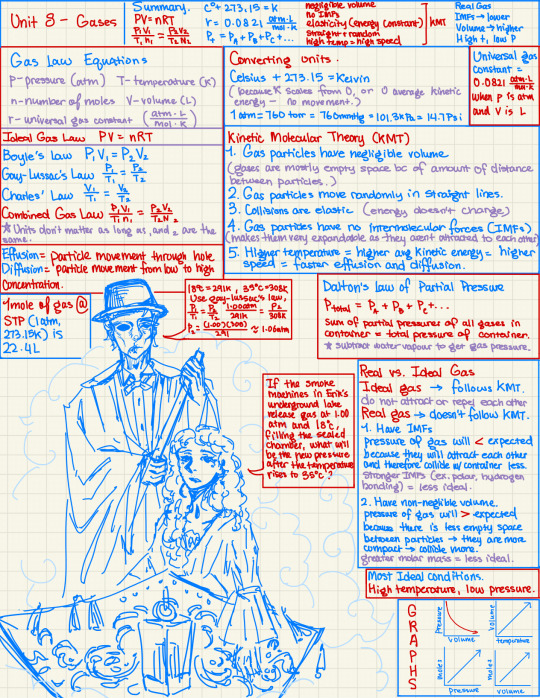 Unit 8 - Gases
Summary.
PV= nRT
P₁V₁/T₁n₁ = P₂V₂/T₂N₂
C° + 273.15 = K
r = 0.0821 atm·L/mol·K
Pₜ = P_A + P_B + P_C + ...
negligible volume
no IMFs
elasticity (energy constant)
straight + random
high temp = high speed
KMT
Real Gas
IMFs → lower
Volume → higher
High t, low P
Gas Law Equations
P-pressure (atm) T-temperature (K)
n-number of moles V-volume (L)
r-universal gas constant (atm·L/mol·K)
Converting Units.
Celsius + 273.15 = Kelvin
(because K scales from 0, or 0 average kinetic
energy - no movement.)
1 atm = 760 torr = 760mmHg = 101.3kPa = 14.7Psi
Universal gas
constant =
0.0821 atm·L/mol·K
when P is atm
and V is L
Ideal Gas Law PV = nRT
Boyle's Law P₁V₁ = P₂V₂
Gay-Lussac's Law P₁/T₁ = P₂/T₂
Charles' Law V₁/T₁ = V₂/T₂
Combined Gas Law P₁V₁/T₁n₁ = P₂V₂/T₂N₂
★ Units don't matter as long as ₁ and ₂ are the
same.
Kinetic Molecular Theory (KMT)
1. Gas particles have negligible volume
(gases are mostly empty space bc of amount of distance
between particles.)
2. Gas particles move randomly in straight lines.
3. Collisions are elastic (energy doesn't change)
4. Gas particles have no intermolecular forces (IMFs)
(makes them very expandable as they aren't attracted to each other)
5. Higher temperature = higher avg kinetic energy = higher
speed = faster effusion and diffusion.
Effusion = particle movement through hole
Diffusion = particle movement from low to high
concentration.
1 mole of gas @
STP (1atm,
273.15K) is
22.4L
18°C = 291K, 35°C = 308K
Use gay-lussac's law,
P₁/T₁ = P₂/T₂ 1.00atm/291K = P₂/308K
P₂ = (1.00)(308)/291 ≈ 1.06atm
Dalton's Law of Partial Pressure
P total = P_A + P_B + P_C + ...
Sum of partial pressures of all gases in
container = total pressure of container.
★ subtract water vapour to get gas pressure.
If the smoke
machines in Erik's
underground lake
release gas at 1.00
atm and 18°C,
filling the sealed
chamber, what will
be the new pressure
after the temperature
rises to 35°C?
Real vs. Ideal Gas
Ideal gas → follows KMT.
do not attract or repel each other
Real gas → doesn't follow KMT.
1. Have IMFs
pressure of gas will < expected
because they will attract each other
and therefore collide w/ container less.
Stronger IMFs (ex. polar, hydrogen
bonding) = less ideal.
2. Have non-neglible volume.
pressure of gas will > expected
because there is less empty space
between particles → they are more
compact → collide more.
greater molar mass = less ideal.
Most Ideal Conditions.
High temperature, low pressure.
GRAPHS
pressure
volume
volume
temperature
moles
pressure
moles
volume